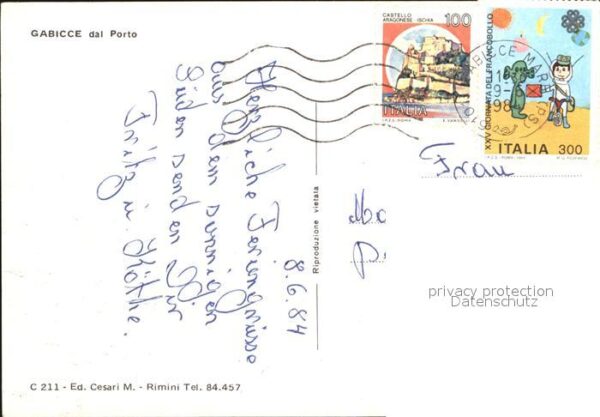 GABICCE dal Porto
CASTELLO
ARAGONESE ISCHIA
100
ITALIA
XXV GIORNATA DEL FRANCOBOLLO
ITALIA 300
8.6.84
Herzliche Feriengrüsse
aus dem sonnigen
Süden senden Dir
Fritz u. Käthe.
Frau
Riproduzione vietata
privacy protection
Datenschutz
C 211 - Ed. Cesari M. - Rimini Tel. 84.457